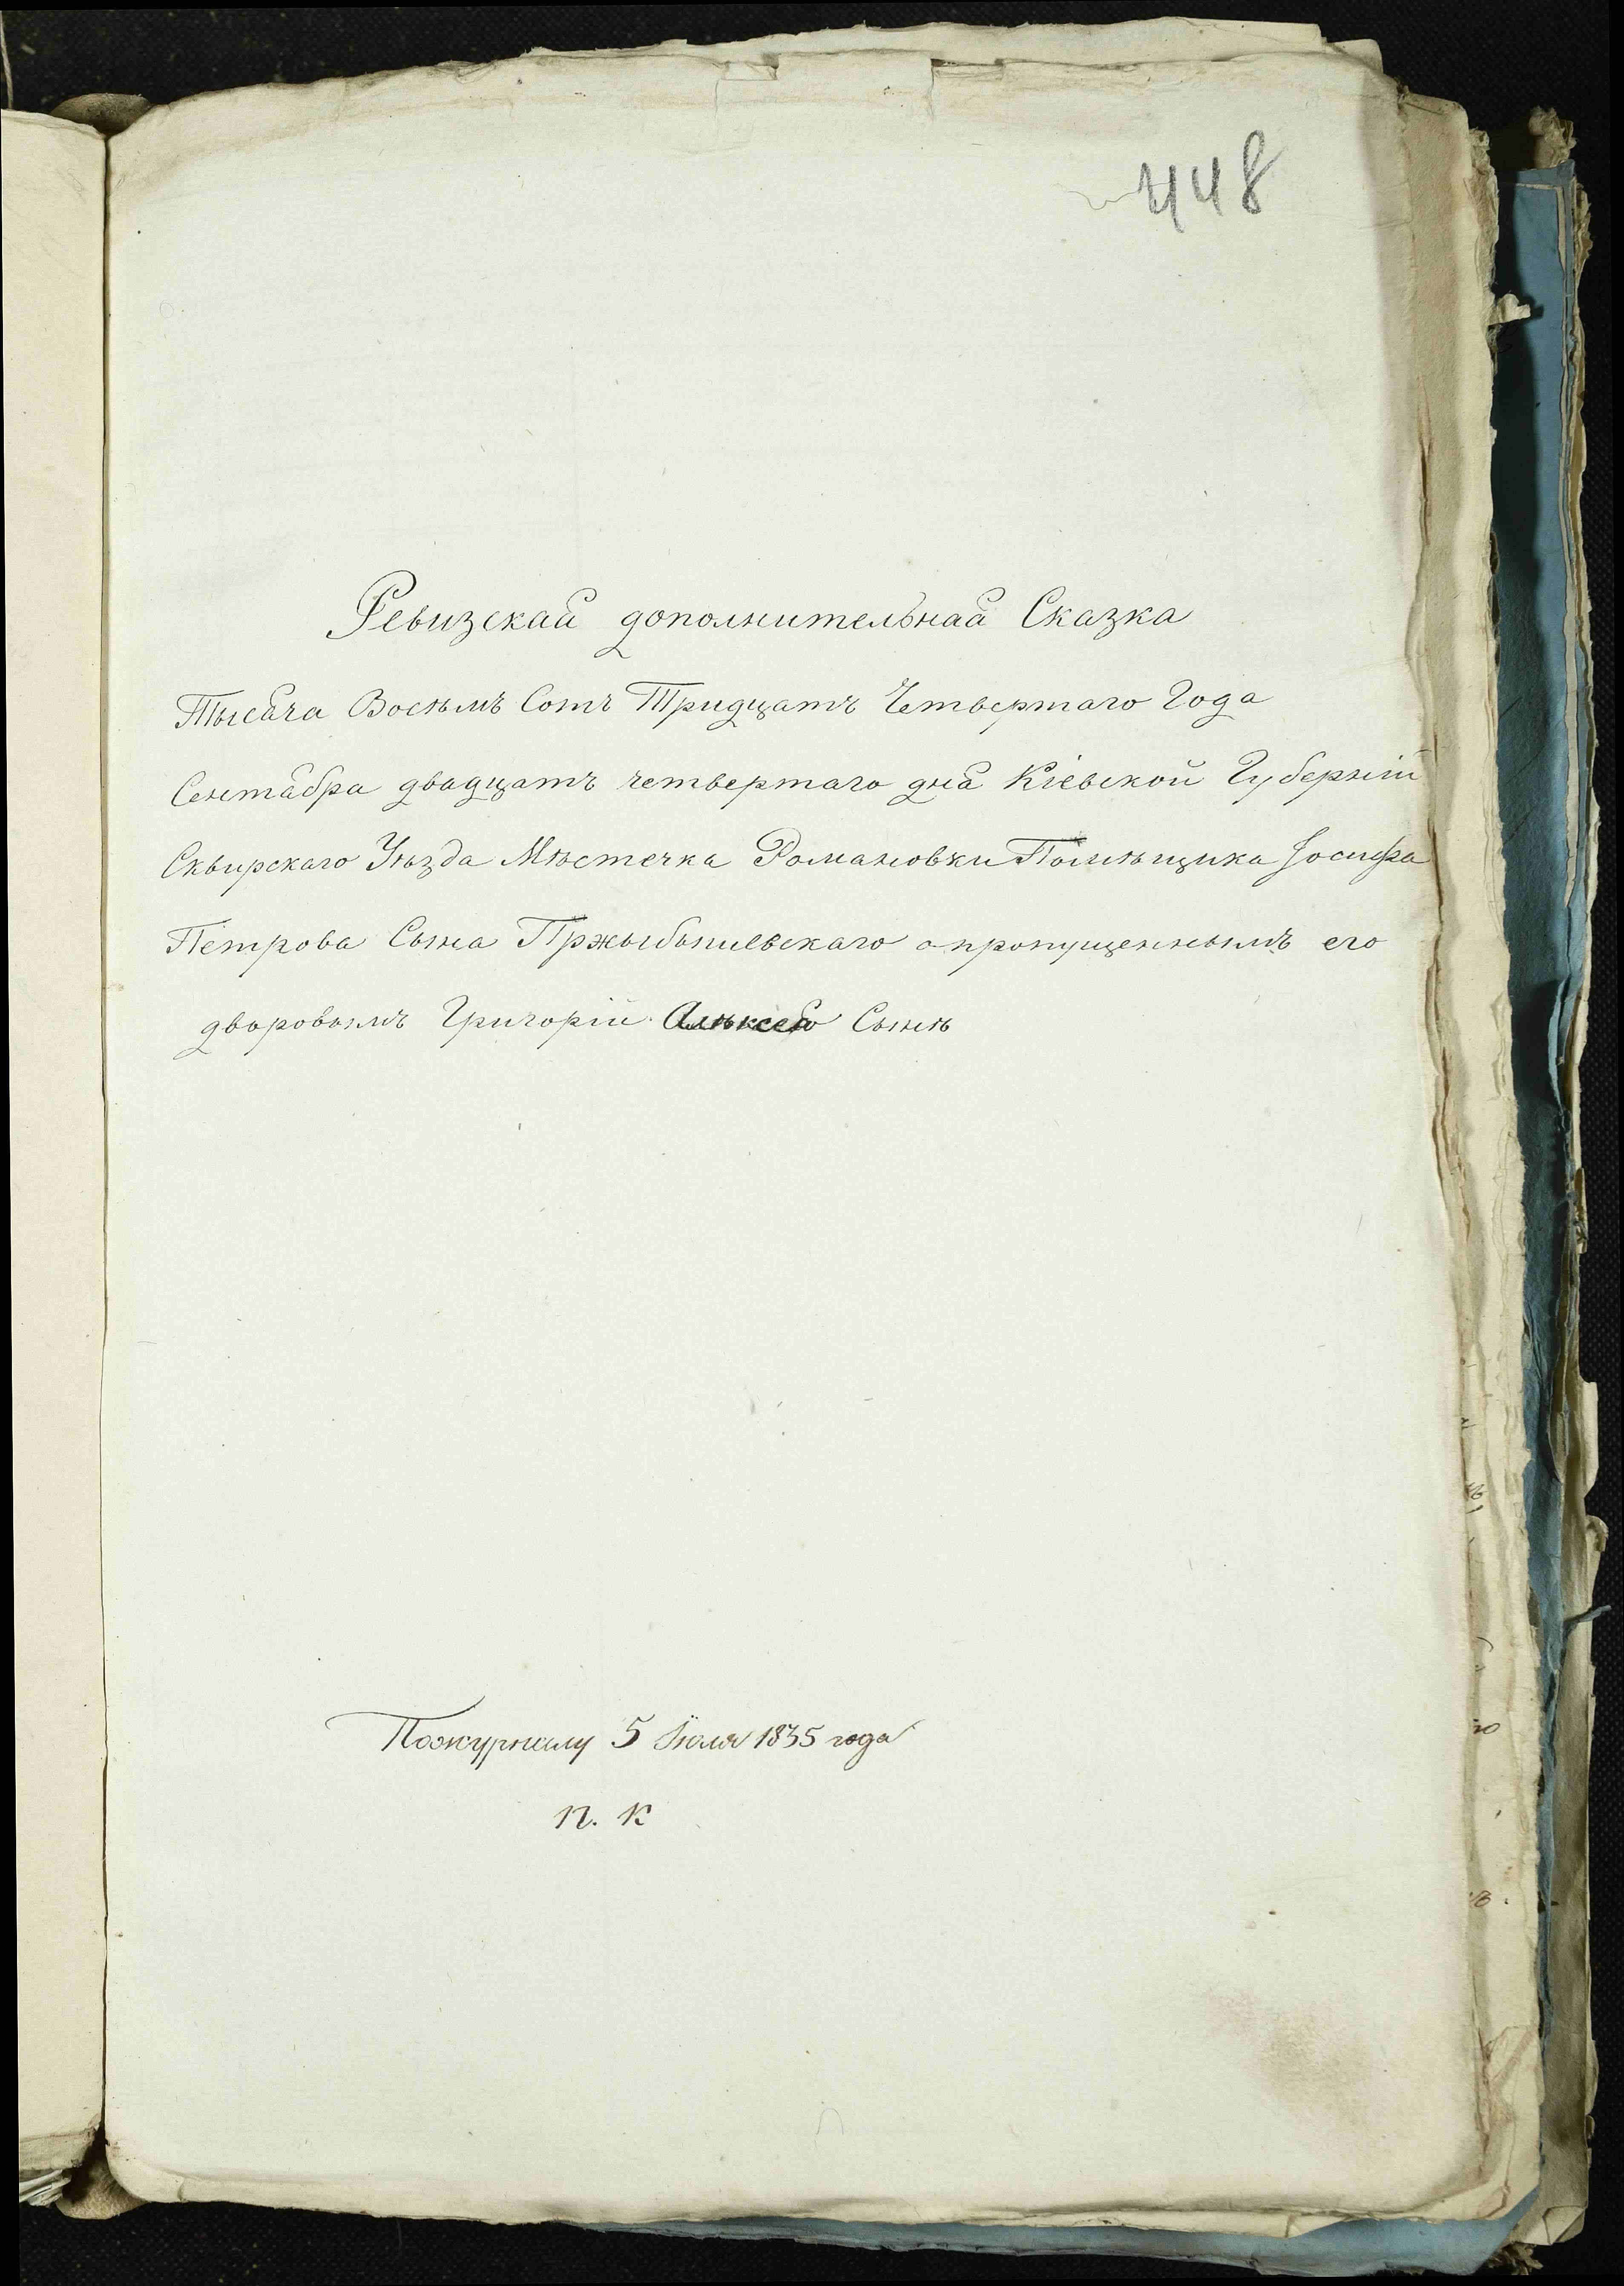 448
Ревизская дополнительная Сказка
Тысяча Восемъ Сотъ Тридцать Четвертаго Года
Сентября двадцать четвертаго дня Кіевской Губерніи
Сквирскаго Уѣзда Мѣстечка Романовки Помѣщика Іосифа
Петрова Сына Пржыбыпіевскаго о пропущенномъ его
дворовомъ Григоріи Сынѣ
По журналу 5 Іюля 1835 года
п. к